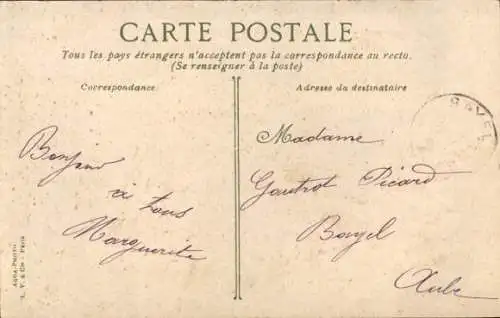 CARTE POSTALE
Tous les pays étrangers n'acceptent pas la correspondance au recto.
(Se renseigner à la poste)
Correspondance
Adresse du destinataire
Bonjour
à tous
Marguerite
Madame
Gautrot Picard
Bayel
Aube
BAYEL
AQUA-PHOTO
L. V. & Cie - PARIS